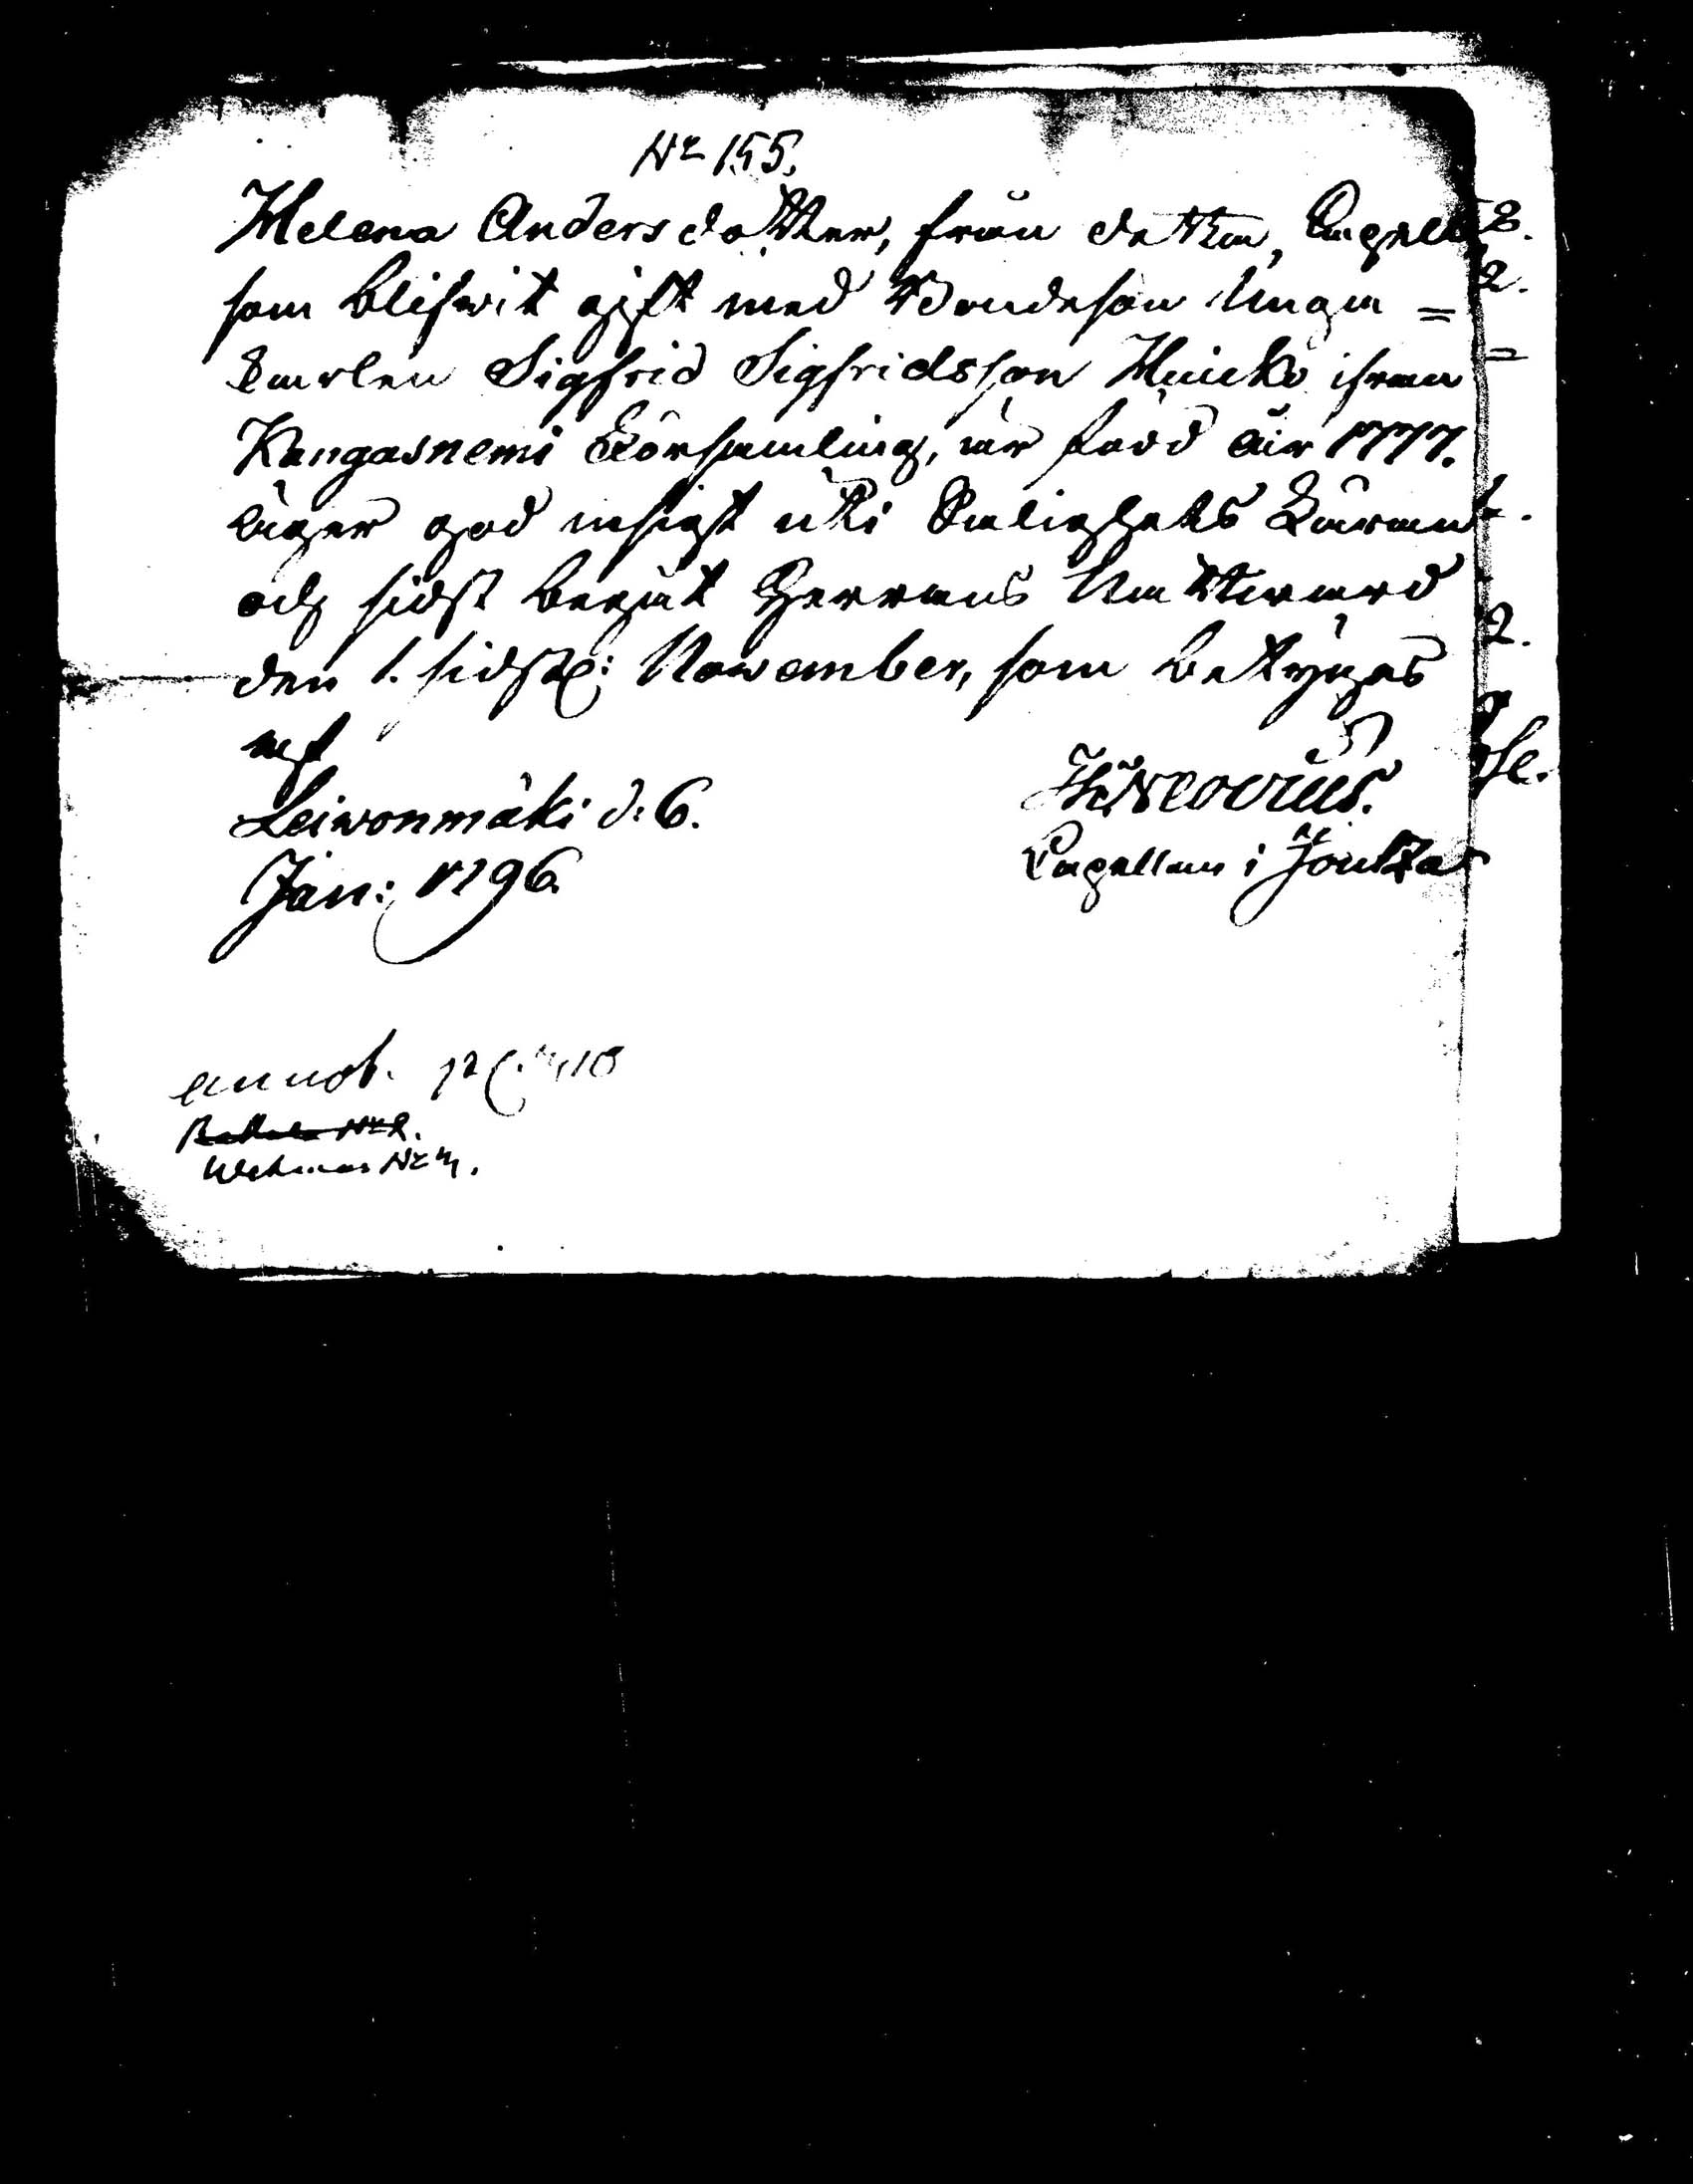 No 155.
Helena Andersdotter, från detta Capell
som blifwit gift med Bondeson Unga =
Karlen Sigfrid Sigfridsson Huicko ifrån
Kangasnemi Församling, är född år 1777.
äger god insigt uti Salighets Läran
och sidst begått Herrans Nattward
den 1. sidstl: November, som betygas
af
Leiwonmäki d. 6.
Jan: 1796.
Capellan i Joutza
annot.
No 4.